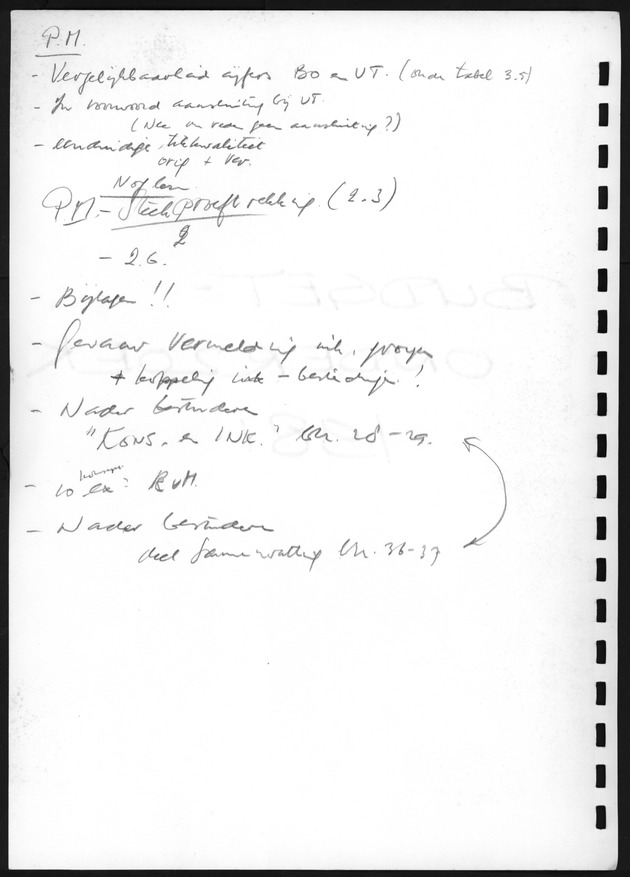 P.M.
- Vergelijkbaarheid cijfers BO en UT. (onder tabel 3.5)
- In voorwoord aansluiting bij UT.
(Nee om reden geen aansluiting?)
- eenduidige tikkwaliteit
orig + Ver.
Nog lezen
PM - Steekproeftrekking. (2.3)
2
- 2.6.
- Bijlagen !!
- Gevaar Vermelding ink. groepen
+ koppeling ink - bestedingen !
- Nader bestuderen
"KONS. en INK." blz. 28-29.
- 10 ex: RvM.
- Nader bestuderen
deel Samenvatting blz. 36-37
BUDGET-
ONDERZOEK